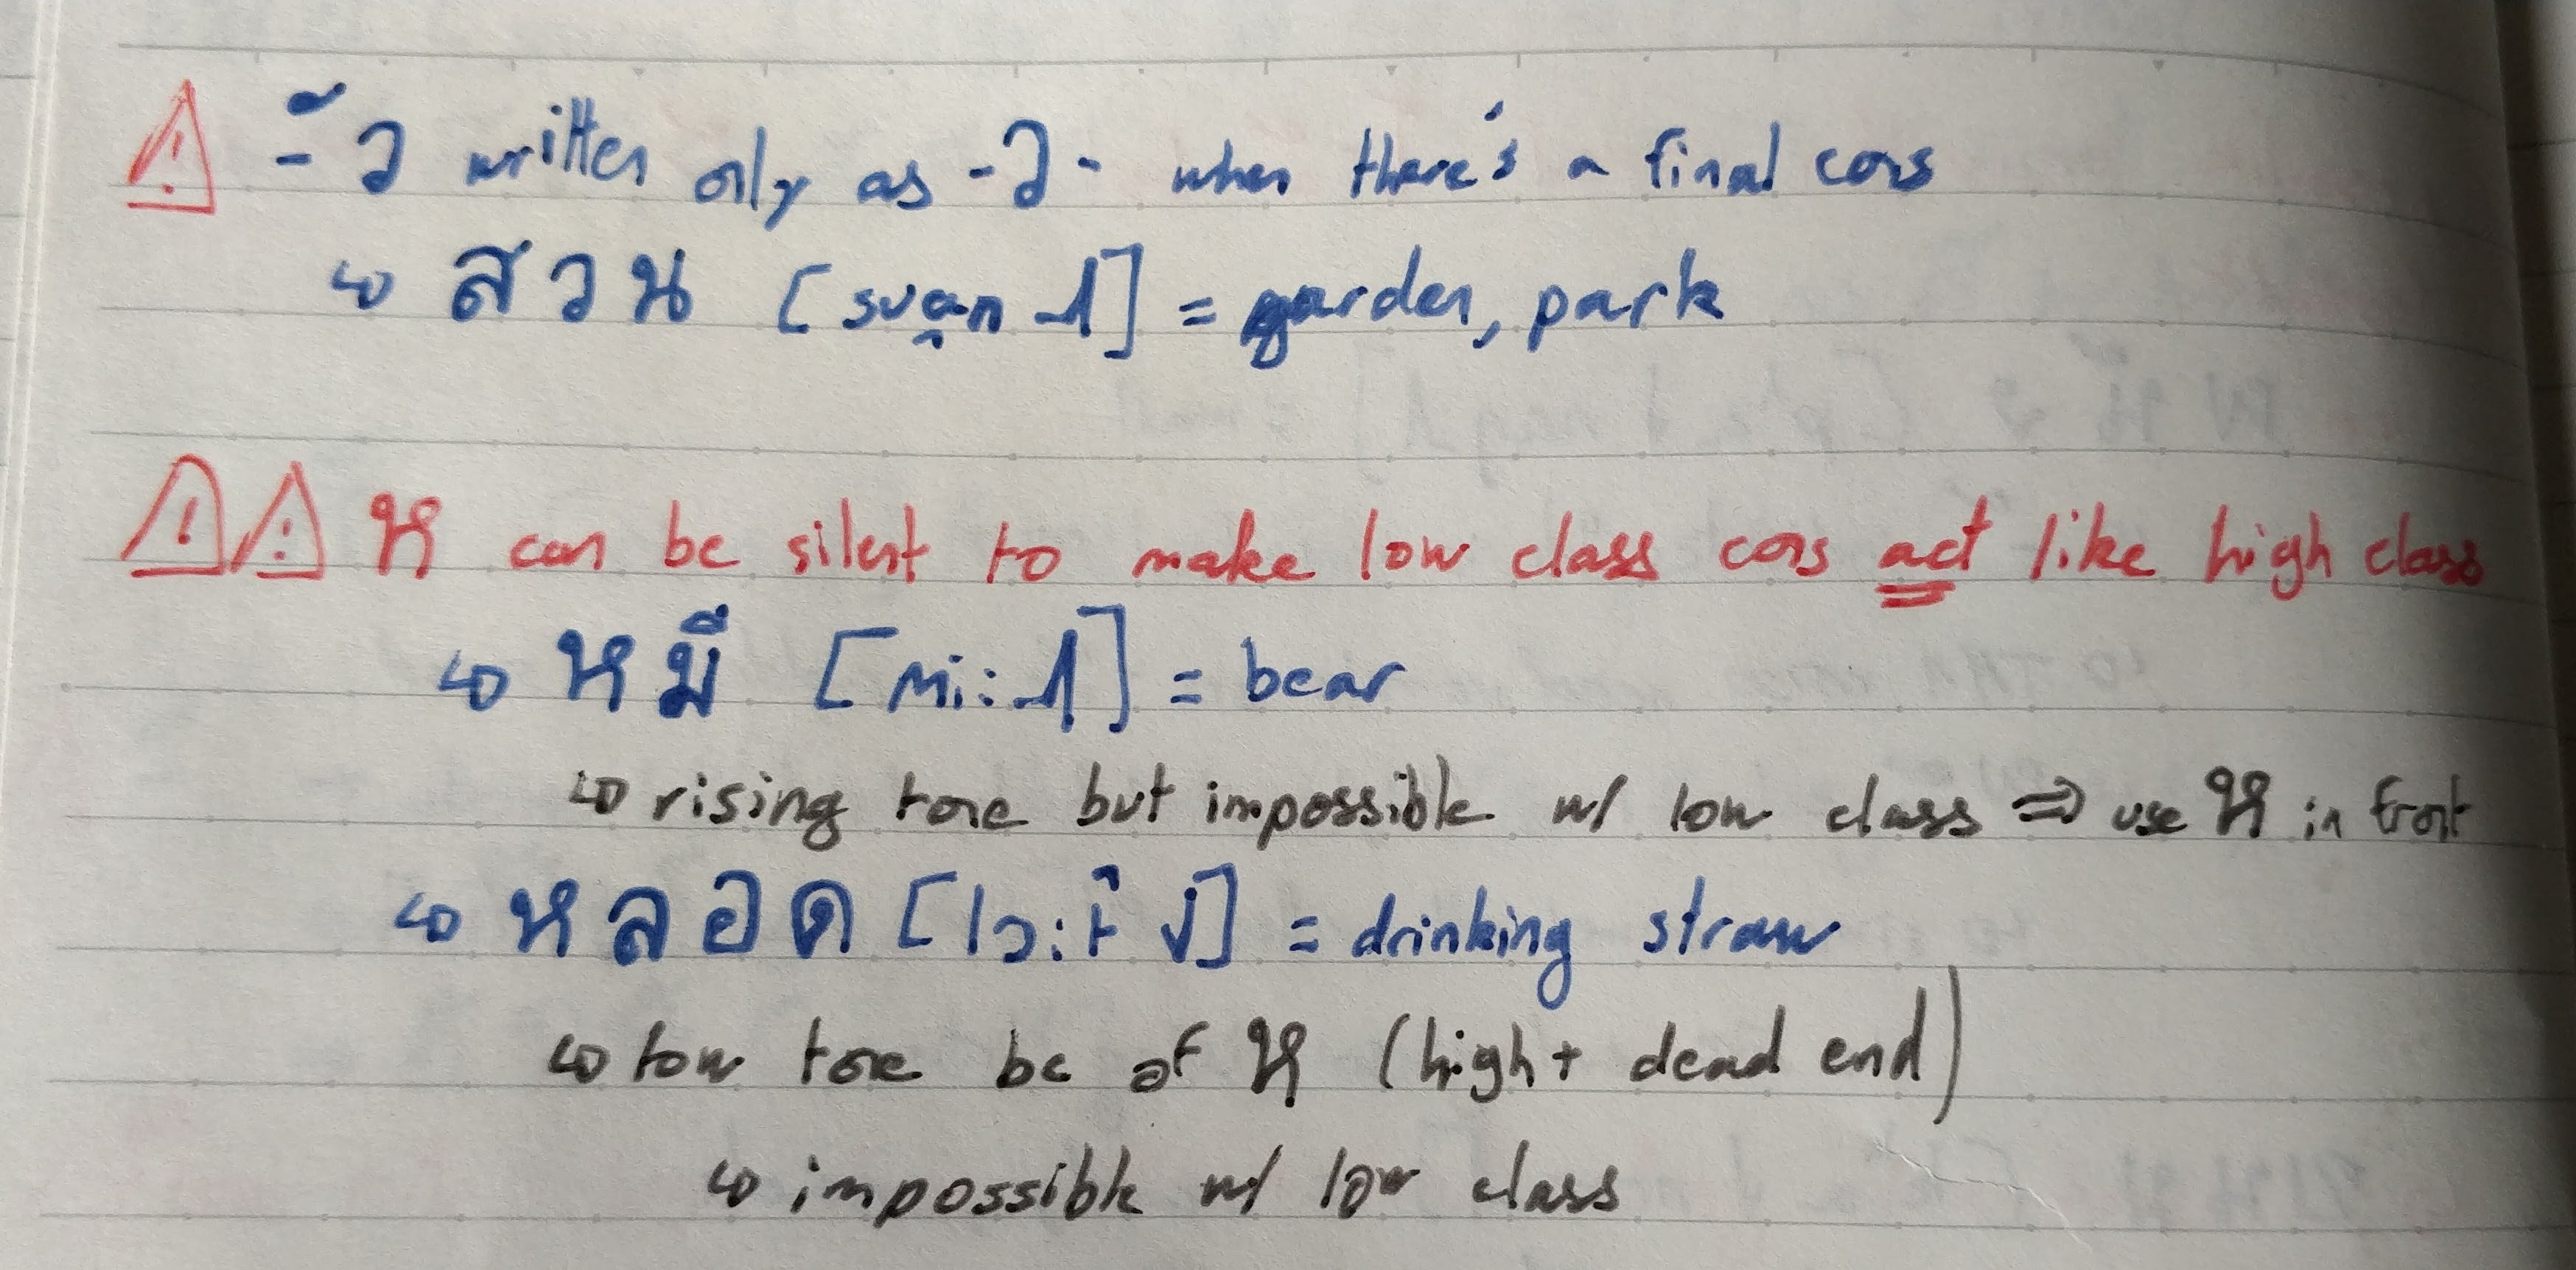 ⚠ -ัว written only as -ว- when there's a final cons
↳ สวน [suə̯n ˩˩˦] = garden, park
⚠⚠ ห can be silent to make low class cons act like high class
↳ หมี [mi: ˩˩˦] = bear
↳ rising tone but impossible w/ low class ⇒ use ห in front
↳ หลอด [lɔ:t̚ ˨˩] = drinking straw
↳ low tone bc of ห (high + dead end)
↳ impossible w/ low class